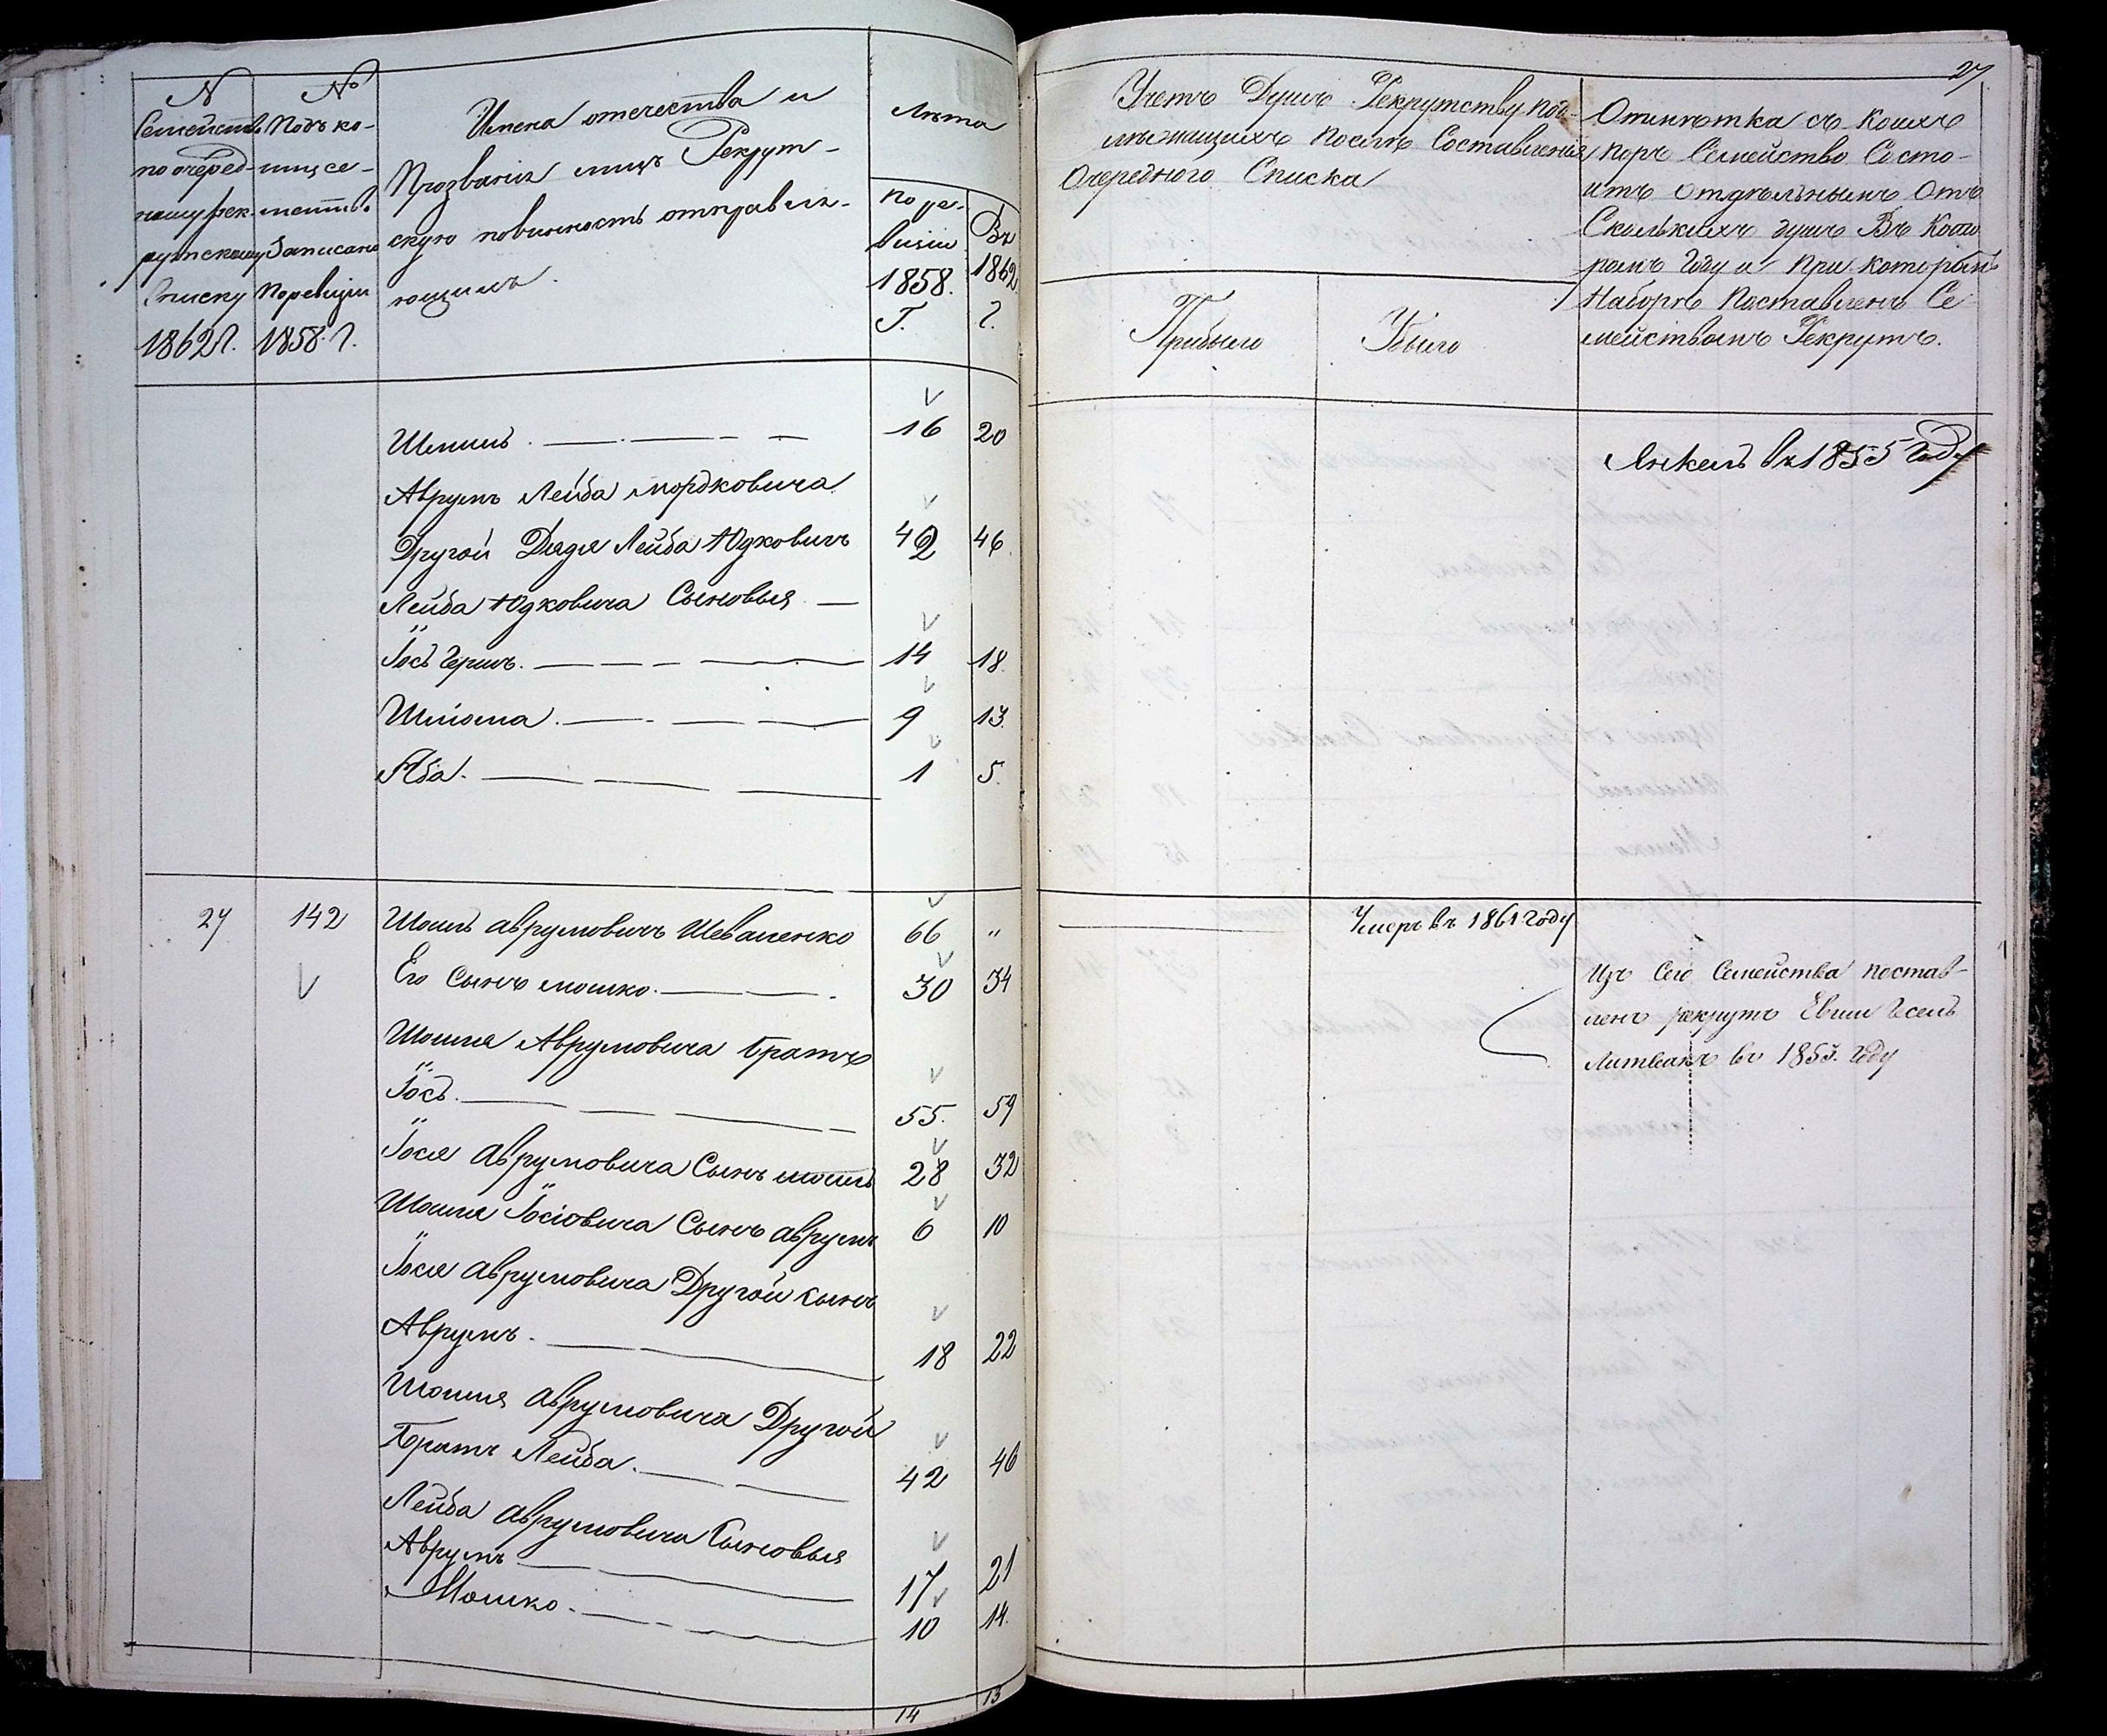 №
Семейств
по очеред-
ному рек-
рутскому
списку
1862 Г.
№
Подъ ко-
имъ се-
мейство
Записано
По ревизіи
1858. Г.
Имена отечества и
Прозванія лицъ Рекрут-
скую повинность отправля-
ющимъ.
Лѣта
По ре-
визіи
1858.
Г.
Въ
1862
Г.
Шмиль 16 20
Аврумъ Лейба Мордковича
Другой Дядя Лейба Юдковичъ 42 46.
Лейба Юдковича Сыновья
Іось Гершъ. 14 18.
Шліома. 9 13.
Аба. 1 5.
27 142 Шоиль Аврумовичъ Шеваленко 66 "
Его Сынъ Мошко. 30 34
Шоиля Аврумовича братъ
Іось. 55. 59
Іося Аврумовича Сынъ Шоиль 28 32
Шоиля Іосіовича Сынъ Аврумъ 6 10
Іося Аврумовича Другой сынъ
Аврумъ. 18 22
Шоиля Аврумовича Другой
Братъ Лейба. 42 46
Лейба Аврумовича Сыновья
Аврумъ 17 21
Мошко. 10 14.
14 13
27
Учетъ Душъ Рекрутству под-
лѣжащихъ После Составленія
Очередного Списка
Прибыло
Убыло
Отмѣтка съ Коихъ
Поръ Семейство Состо-
итъ Отдѣльнымъ Отъ
Сколькихъ душъ Въ Кото
ромъ Году и При которомъ
Наборѣ Поставленъ Се-
мействомъ Рекрутъ.
Янкель въ 1855 Году
Умеръ въ 1861 Году
Изъ Сего Семейства постав-
ленъ рекрутъ Евши Гсель
Литвакъ въ 1853. Году